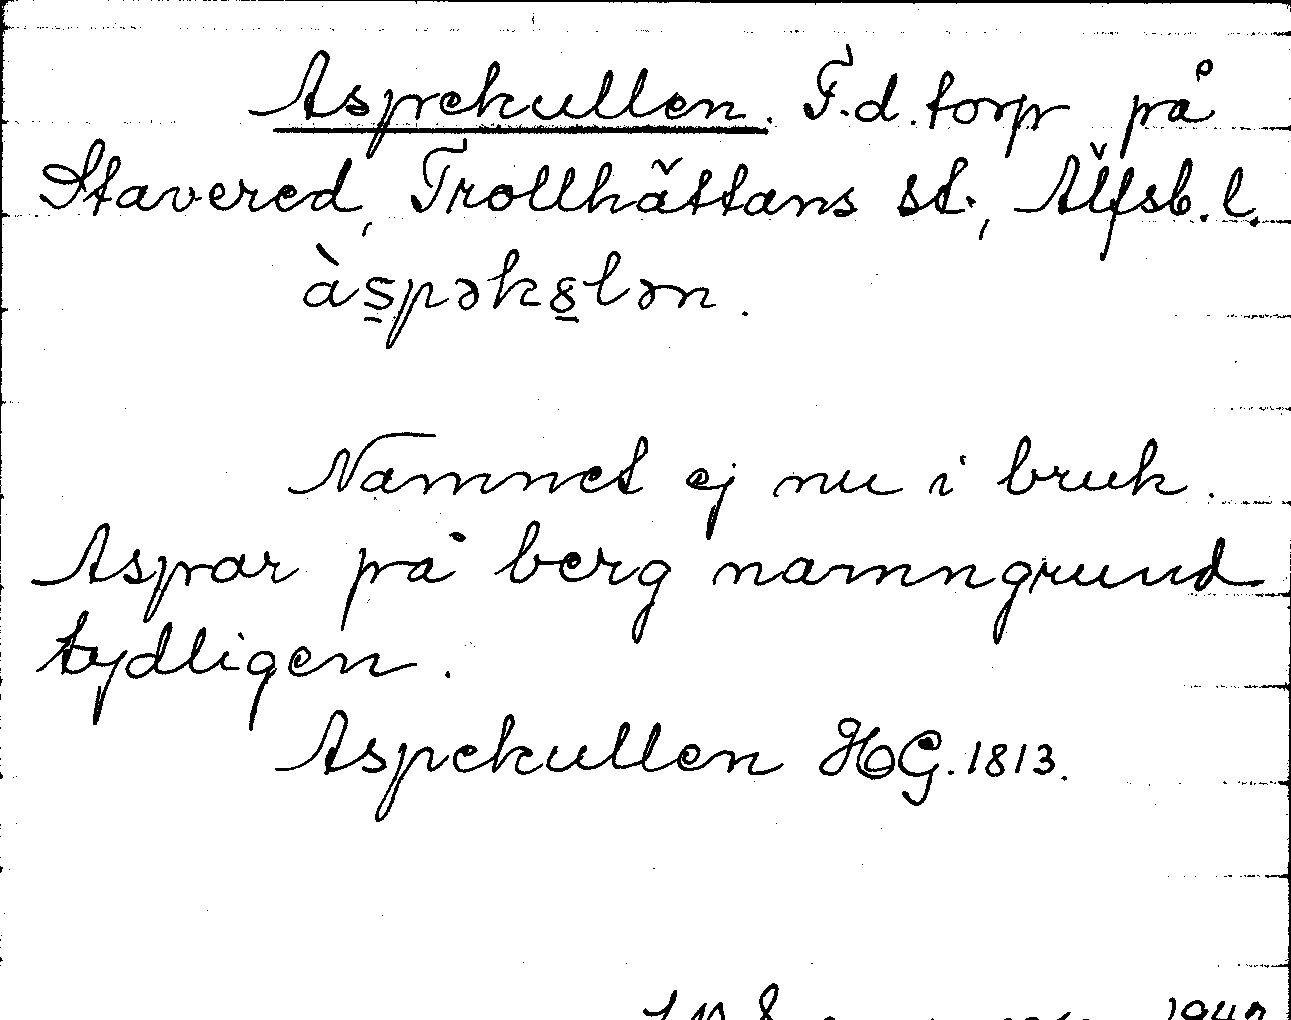 Aspekullen. F.d. torp på
Stavered, Trollhättans st., Älfsb. l.
às̲pək8̲lən.
Namnet ej nu i bruk.
Aspar på berg namngrund
tydligen.
Aspekullen HG. 1813.